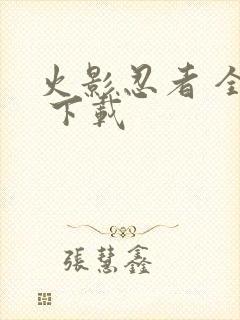 火影忍者 全
下載
張慧鑫